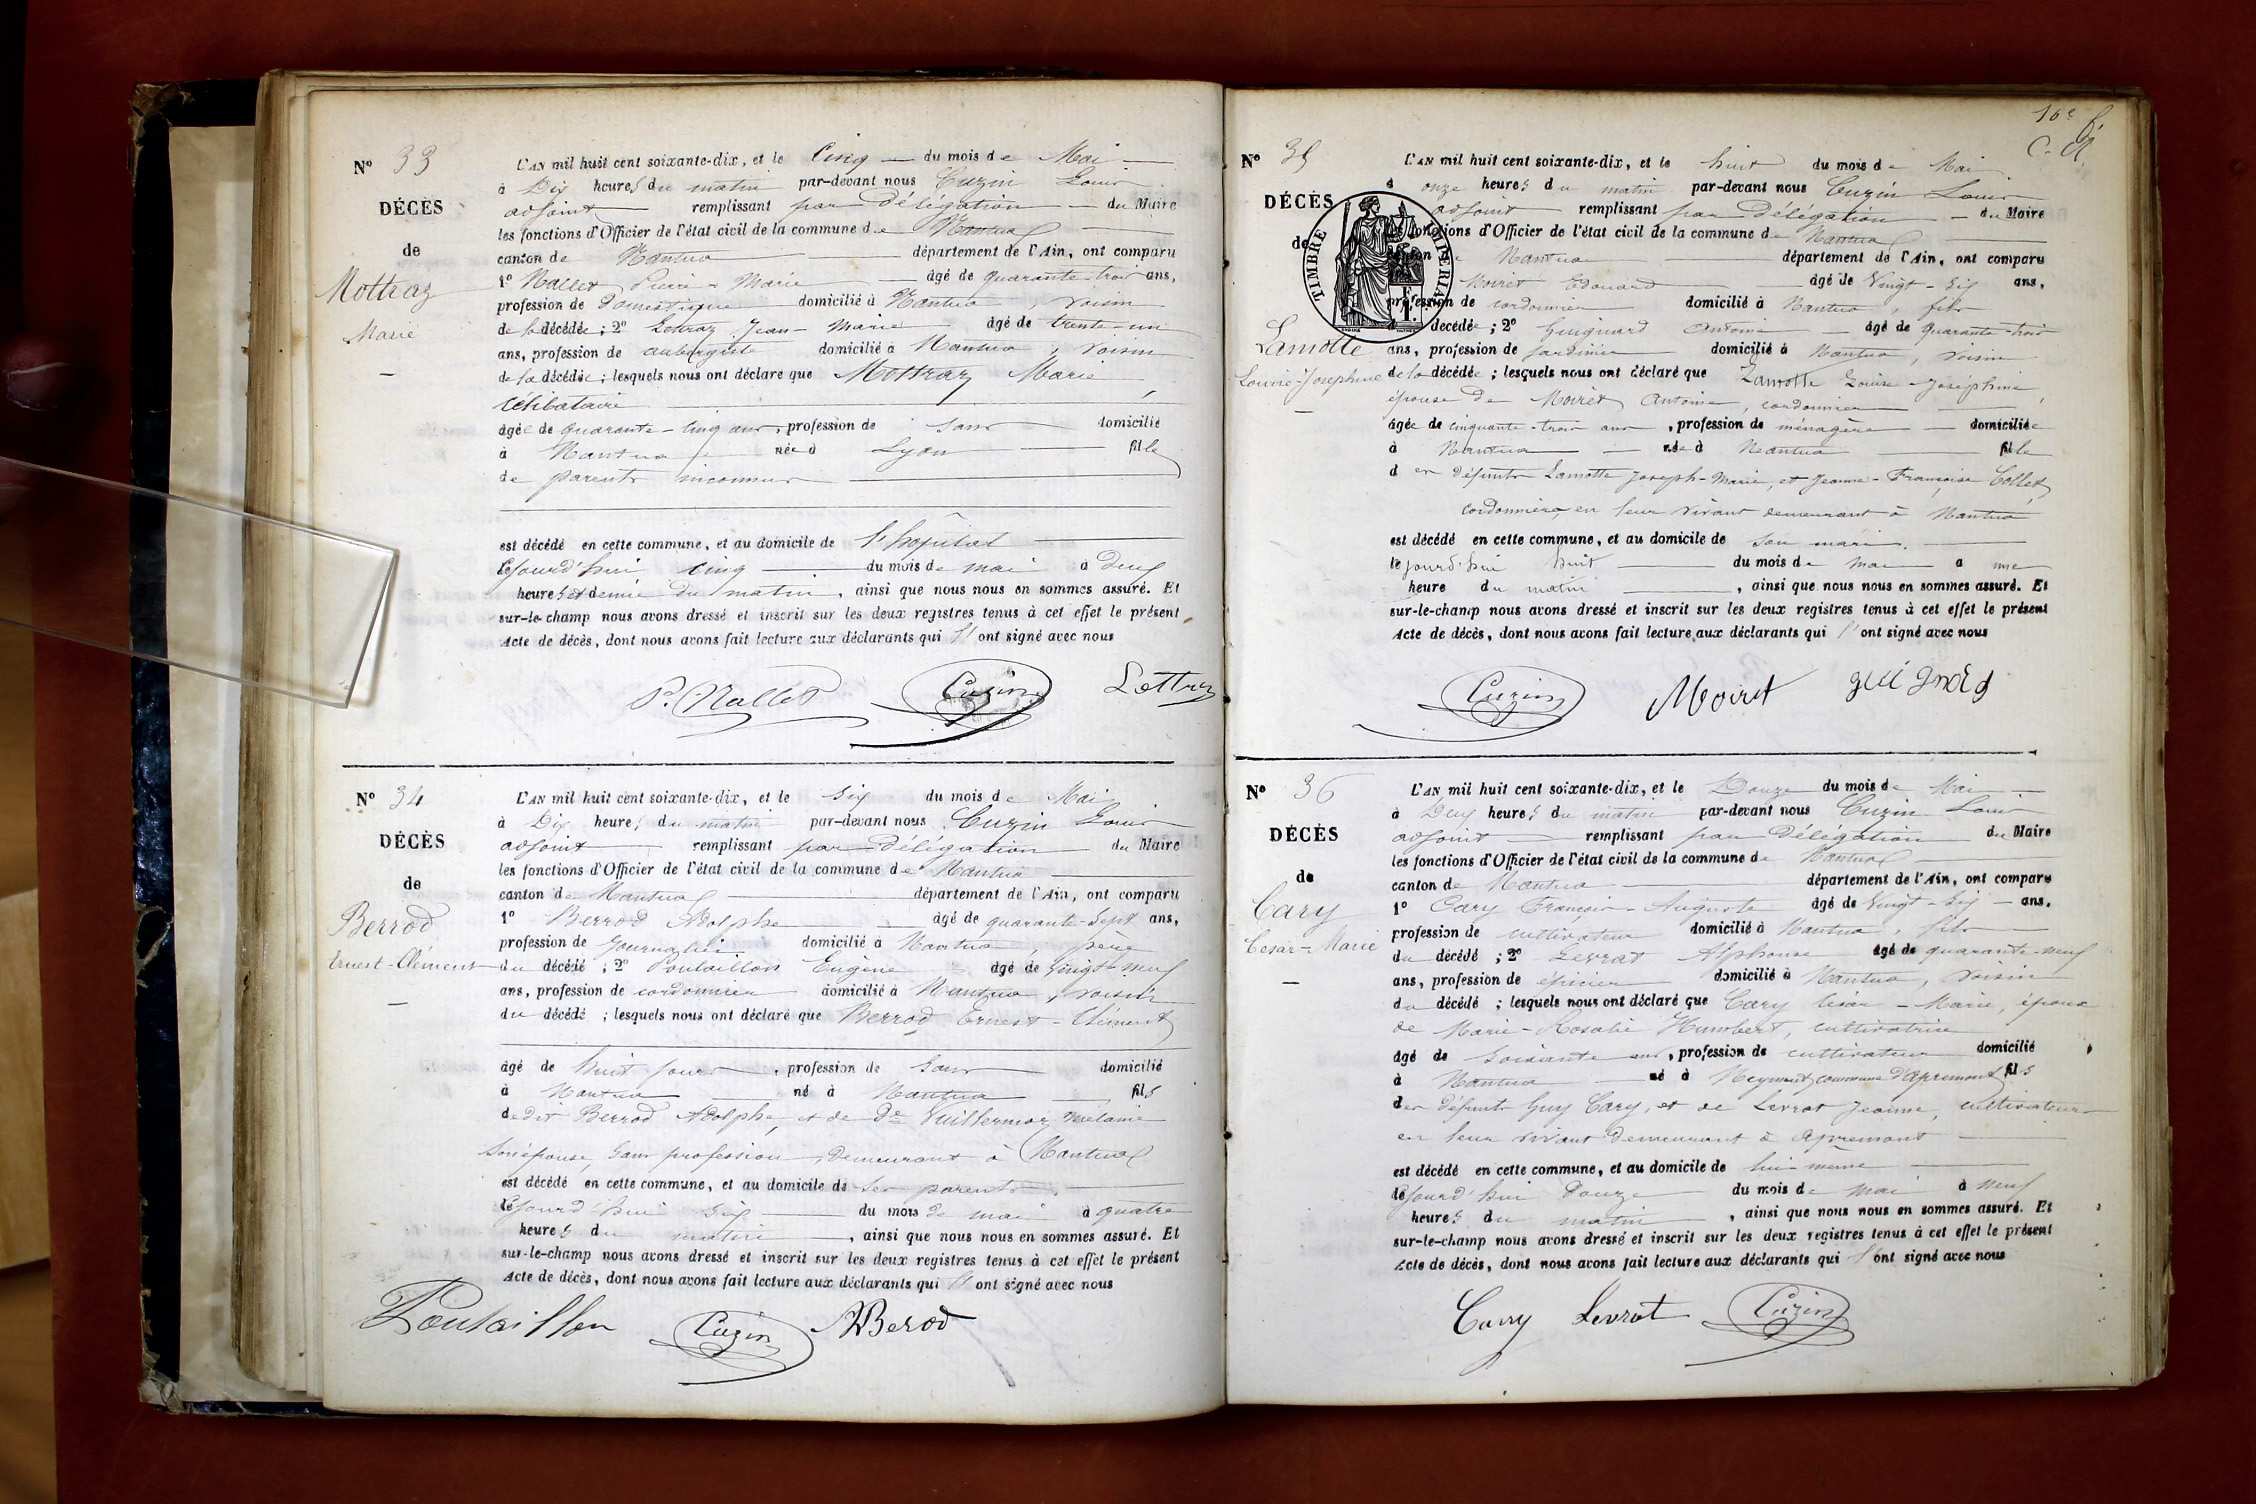 N° 33
DÉCÈS
de
Mottraz
Marie
L'AN mil huit cent soixante-dix, et le Cinq du mois de Mai
à Dix heures du matin par-devant nous Cuzin Louis
adjoint remplissant par Délégation du Maire
les fonctions d'Officier de l'état civil de la commune de Nantua
canton de Nantua département de l'Ain, ont comparu
1° Nallet Pierre-Marie âgé de quarante-trois ans,
profession de Domestique domicilié à Nantua, voisin
de la décédée ; 2° Lettraz Jean-Marie âgé de trente-un
ans, profession de aubergiste domicilié à Nantua, voisin
de la décédée ; lesquels nous ont déclaré que Mottraz Marie,
célibataire
âgée de quarante-cinq ans, profession de sans domicilié
à Nantua née à Lyon fille
de parents inconnus
est décédé en cette commune, et au domicile de l'hôpital
le jourd'hui cinq du mois de mai à deux
heures et demie du matin, ainsi que nous nous en sommes assuré. Et
sur-le-champ nous avons dressé et inscrit sur les deux registres tenus à cet effet le présent
Acte de décès, dont nous avons fait lecture aux déclarants qui l'ont signé avec nous
P. Nallet Cuzin Lettraz
N° 34
DÉCÈS
de
Berrod
Ernest-Clément
L'AN mil huit cent soixante-dix, et le six du mois de Mai
à Dix heures du matin par-devant nous Cuzin Louis
adjoint remplissant par Délégation du Maire
les fonctions d'Officier de l'état civil de la commune de Nantua
canton de Nantua département de l'Ain, ont comparu
1° Berrod Adolphe âgé de quarante-sept ans,
profession de journalier domicilié à Nantua, père
du décédé ; 2° Poulaillon Eugène âgé de vingt-neuf
ans, profession de cordonnier domicilié à Nantua, voisin
du décédé ; lesquels nous ont déclaré que Berrod Ernest-Clément
âgé de huit jours, profession de sans domicilié
à Nantua né à Nantua fils
de dit Berrod Adolphe, et de De Vuillermoz Mélanie
son épouse, sans profession, demeurant à Nantua
est décédé en cette commune, et au domicile de ses parents
le jourd'hui six du mois de mai à quatre
heures du matin, ainsi que nous nous en sommes assuré. Et
sur-le-champ nous avons dressé et inscrit sur les deux registres tenus à cet effet le présent
Acte de décès, dont nous avons fait lecture aux déclarants qui l'ont signé avec nous
Poulaillon Cuzin ABerod
16e f.
N° 35
DÉCÈS
de
TIMBRE IMPERIAL
Lamotte
Louise-Josephine
L'AN mil huit cent soixante-dix, et le huit du mois de Mai
à onze heures du matin par-devant nous Cuzin Louis
adjoint remplissant par Délégation du Maire
les fonctions d'Officier de l'état civil de la commune de Nantua
canton de Nantua département de l'Ain, ont comparu
Moiret Edouard âgé de Vingt-six ans,
profession de cordonnier domicilié à Nantua, fils
decedée ; 2° Guignard Antoine âgé de quarante-trois
ans, profession de jardinier domicilié à Nantua, voisin
de la décédée ; lesquels nous ont déclaré que Lamotte Louise-Joséphine,
épouse de Moiret Antoine, cordonnier
âgée de cinquante-trois ans, profession de ménagère domiciliée
à Nantua née à Nantua fille
d en défunts Lamotte Joseph-Marie, et Jeanne-Françoise Collet,
cordonniers, en leur vivant demeurant à Nantua
est décédé en cette commune, et au domicile de son mari.
le jourd'hui huit du mois de mai à une
heure du matin, ainsi que nous nous en sommes assuré. Et
sur-le-champ nous avons dressé et inscrit sur les deux registres tenus à cet effet le présent
Acte de décès, dont nous avons fait lecture aux déclarants qui l'ont signé avec nous
Cuzin Moiret guignard
N° 36
DÉCÈS
de
Cary
Cesar-Marie
L'AN mil huit cent soixante-dix, et le Douze du mois de Mai
à Dix heures du matin par-devant nous Cuzin Louis
adjoint remplissant par Délégation du Maire
les fonctions d'Officier de l'état civil de la commune de Nantua
canton de Nantua département de l'Ain, ont comparu
1° Cary François-Auguste âgé de Vingt-six ans.
profession de cultivateur domicilié à Nantua, fils
du décédé ; 2° Levrat Alphonse âgé de quarante-neuf
ans, profession de épicier domicilié à Nantua, voisin
du décédé ; lesquels nous ont déclaré que Cary César-Marie, époux
de Marie-Rosalie Humbert, cultivatrice
âgé de soixante ans, profession de cultivateur domicilié
à Nantua né à Meymat commune d'Apremont fils
des défunts Guy Cary, et de Levrat Jeanne, cultivateurs
en leur vivant demeurant à Apremont
est décédé en cette commune, et au domicile de lui-même
le jourd'hui Douze du mois de mai à neuf
heures du matin, ainsi que nous nous en sommes assuré. Et
sur-le-champ nous avons dressé et inscrit sur les deux registres tenus à cet effet le présent
Acte de décès, dont nous avons fait lecture aux déclarants qui l'ont signé avec nous
Cary Levrat Cuzin